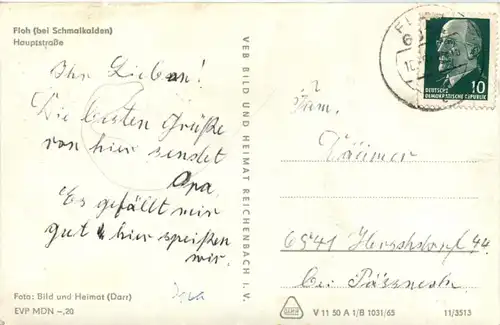 Floh (bei Schmalkalden)
Hauptstraße
Ihr Lieben!
Die besten Grüße
von hier sendet
Opa.
Es gefällt mir
gut hier speißen
wir.
Foto: Bild und Heimat (Darr)
EVP MDN -,20
VEB BILD UND HEIMAT REICHENBACH I. V.
10
DEUTSCHE
DEMOKRATISCHE REPUBLIK
Fam.
6841 Herschdorf 44
bei Pößneck
V 11 50 A 1/B 1031/65
11/3513